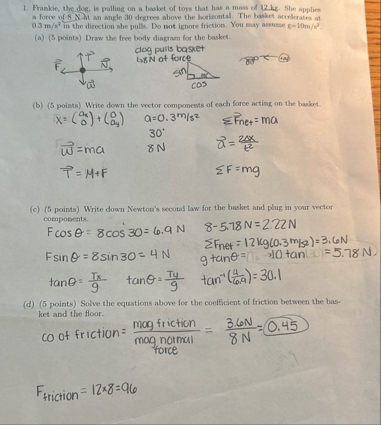 1. Frankie, the dog, is pulling on a basket of toys that has a mass of 12 kg. She applies
a force of 8 N at an angle 30 degrees above the horizontal. The basket accelerates at
0.3 m/s² in the direction she pulls. Do not ignore friction. You may assume g=10m/s².
(a) (5 points) Draw the free body diagram for the basket.
dog pulls basket
w/8N of force
F T N
w
sin
cos
30°
(b) (5 points) Write down the vector components of each force acting on the basket.
a=0.3m/s²
ΣFnet=ma
30°
w=ma
8N
a=2Δx/t²
T=M+F
ΣF=mg
(c) (5 points) Write down Newton's second law for the basket and plug in your vector
components.
Fcosθ=8cos30=6.9N
8-5.78N=2.22N
ΣFnet=12kg(0.3m/s2)=3.6N
Fsinθ=8sin30=4N
gtanθ= 10tan =5.78N
tanθ=Tx/g
tanθ=Ty/g
tan⁻¹(4/6.9)=30.1
(d) (5 points) Solve the equations above for the coefficient of friction between the bas-
ket and the floor.
co of friction= mag friction/mag normal force = 3.6N/8N=0.45
Ffriction=12x8=96